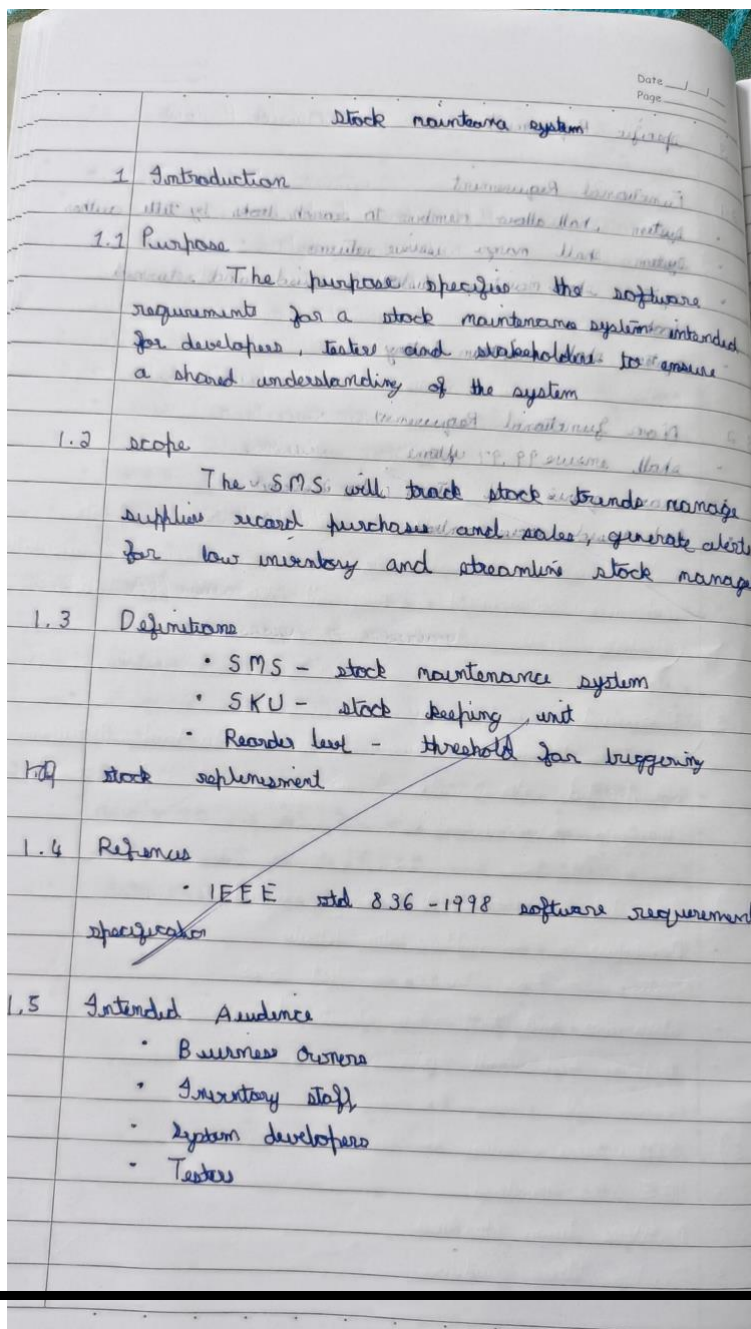 Date
Page
stock mainteana system
1 Introduction
1.1 Purpose
The purpose specifies the software
requirements for a stock maintenance system intended
for developers, testers and stakeholders to ensure
a shared understanding of the system
1.2 scope
The SMS will track stock trends manage
supplies record purchases and sales, generate alerts
for low inventory and streamline stock manage
1.3 Definitions
• SMS - stock maintenance system
• SKU - stock keeping unit
• Reorder level - threshold for triggering
stock replenisment
1.4 Refences
• IEEE std 836 - 1998 software requirement
specification
1.5 Intended Audence
• Business Owners
• Inventory staff
• System developers
• Testers